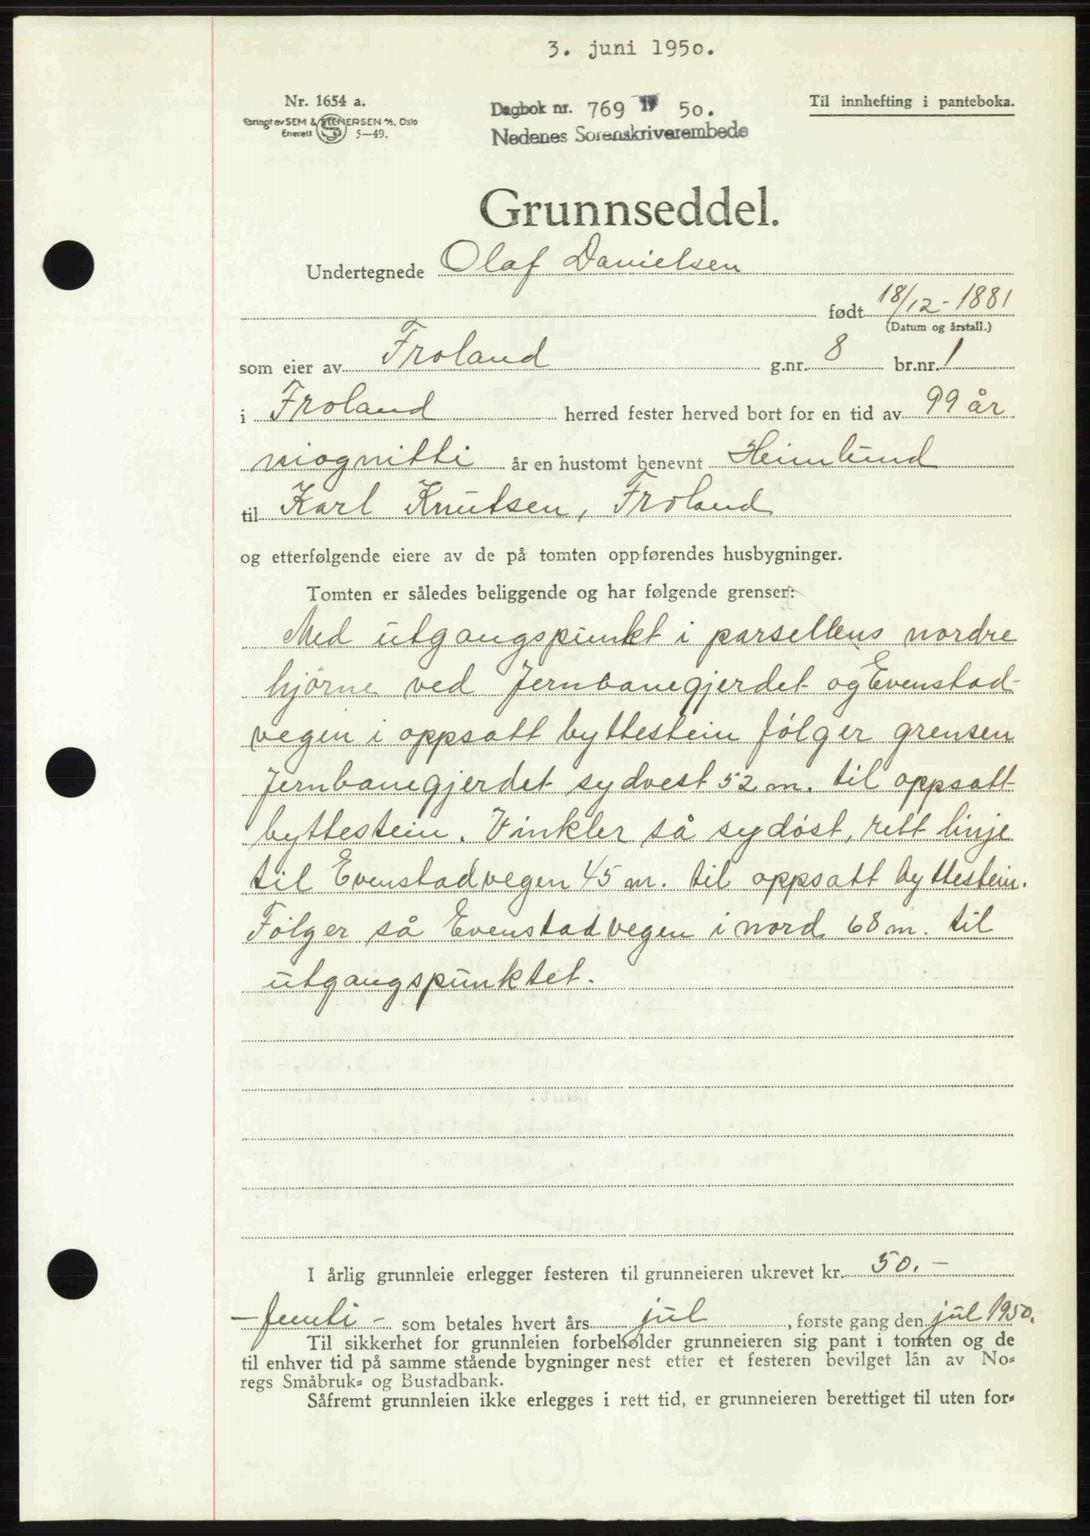 3. juni 1950.
Nr. 1654 a.
Forlagt av SEM & STENERSEN A/S, Oslo
Enerett 5—49.
Dagbok nr. 769 19 50.
Nedenes Sorenskriverembede
Til innhefting i panteboka.
Grunnseddel.
Undertegnede Olaf Danielsen
født 18/12-1881
(Datum og årstall.)
som eier av Froland g.nr. 8 br.nr. 1
i Froland herred fester herved bort for en tid av 99 år
niognitti år en hustomt benevnt Heimlund
til Karl Knutsen, Froland
og etterfølgende eiere av de på tomten oppførendes husbygninger.
Tomten er således beliggende og har følgende grenser:
Med utgangspunkt i parsellens nordre
hjørne ved Jernbanegjerdet og Evenstad-
vegen i oppsatt byttestein følger grensen
Jernbanegjerdet sydvest 52 m. til oppsatt
byttestein. Vinkler så sydøst, rett linje
til Evenstadvegen 45 m. til oppsatt byttestein.
Følger så Evenstadvegen i nord 68 m. til
utgangspunktet.
I årlig grunnleie erlegger festeren til grunneieren ukrevet kr. 50.-
- femti - som betales hvert års jul, første gang den jul 1950.
Til sikkerhet for grunnleien forbeholder grunneieren sig pant i tomten og de
til enhver tid på samme stående bygninger nest etter et festeren bevilget lån av No-
regs Småbruk- og Bustadbank.
Såfremt grunnleien ikke erlegges i rett tid, er grunneieren berettiget til uten for-